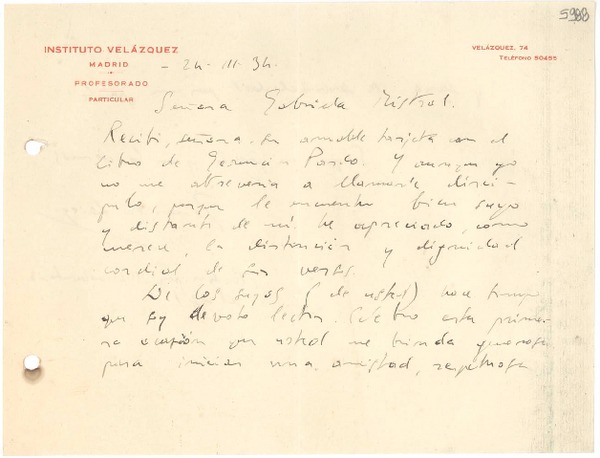 5988
INSTITUTO VELÁZQUEZ
MADRID
PROFESORADO
PARTICULAR
VELÁZQUEZ, 74
TELÉFONO 50455
- 24-III-34.
Señora Gabriela Mistral.
Recibí, señora, su amable tarjeta con el
libro de Pardo. Y aunque yo
no me atrevería a llamarle discí-
pulo, porque le encuentro bien suyo
y distante de mí, he apreciado, como
merece, la distinción y dignidad
cordial de sus versos.
De los suyos (de usted) hace tiempo
que soy devoto lector. Celebro esta prime-
ra ocasión que usted me brinda generosa
para iniciar una amistad, respetuosa